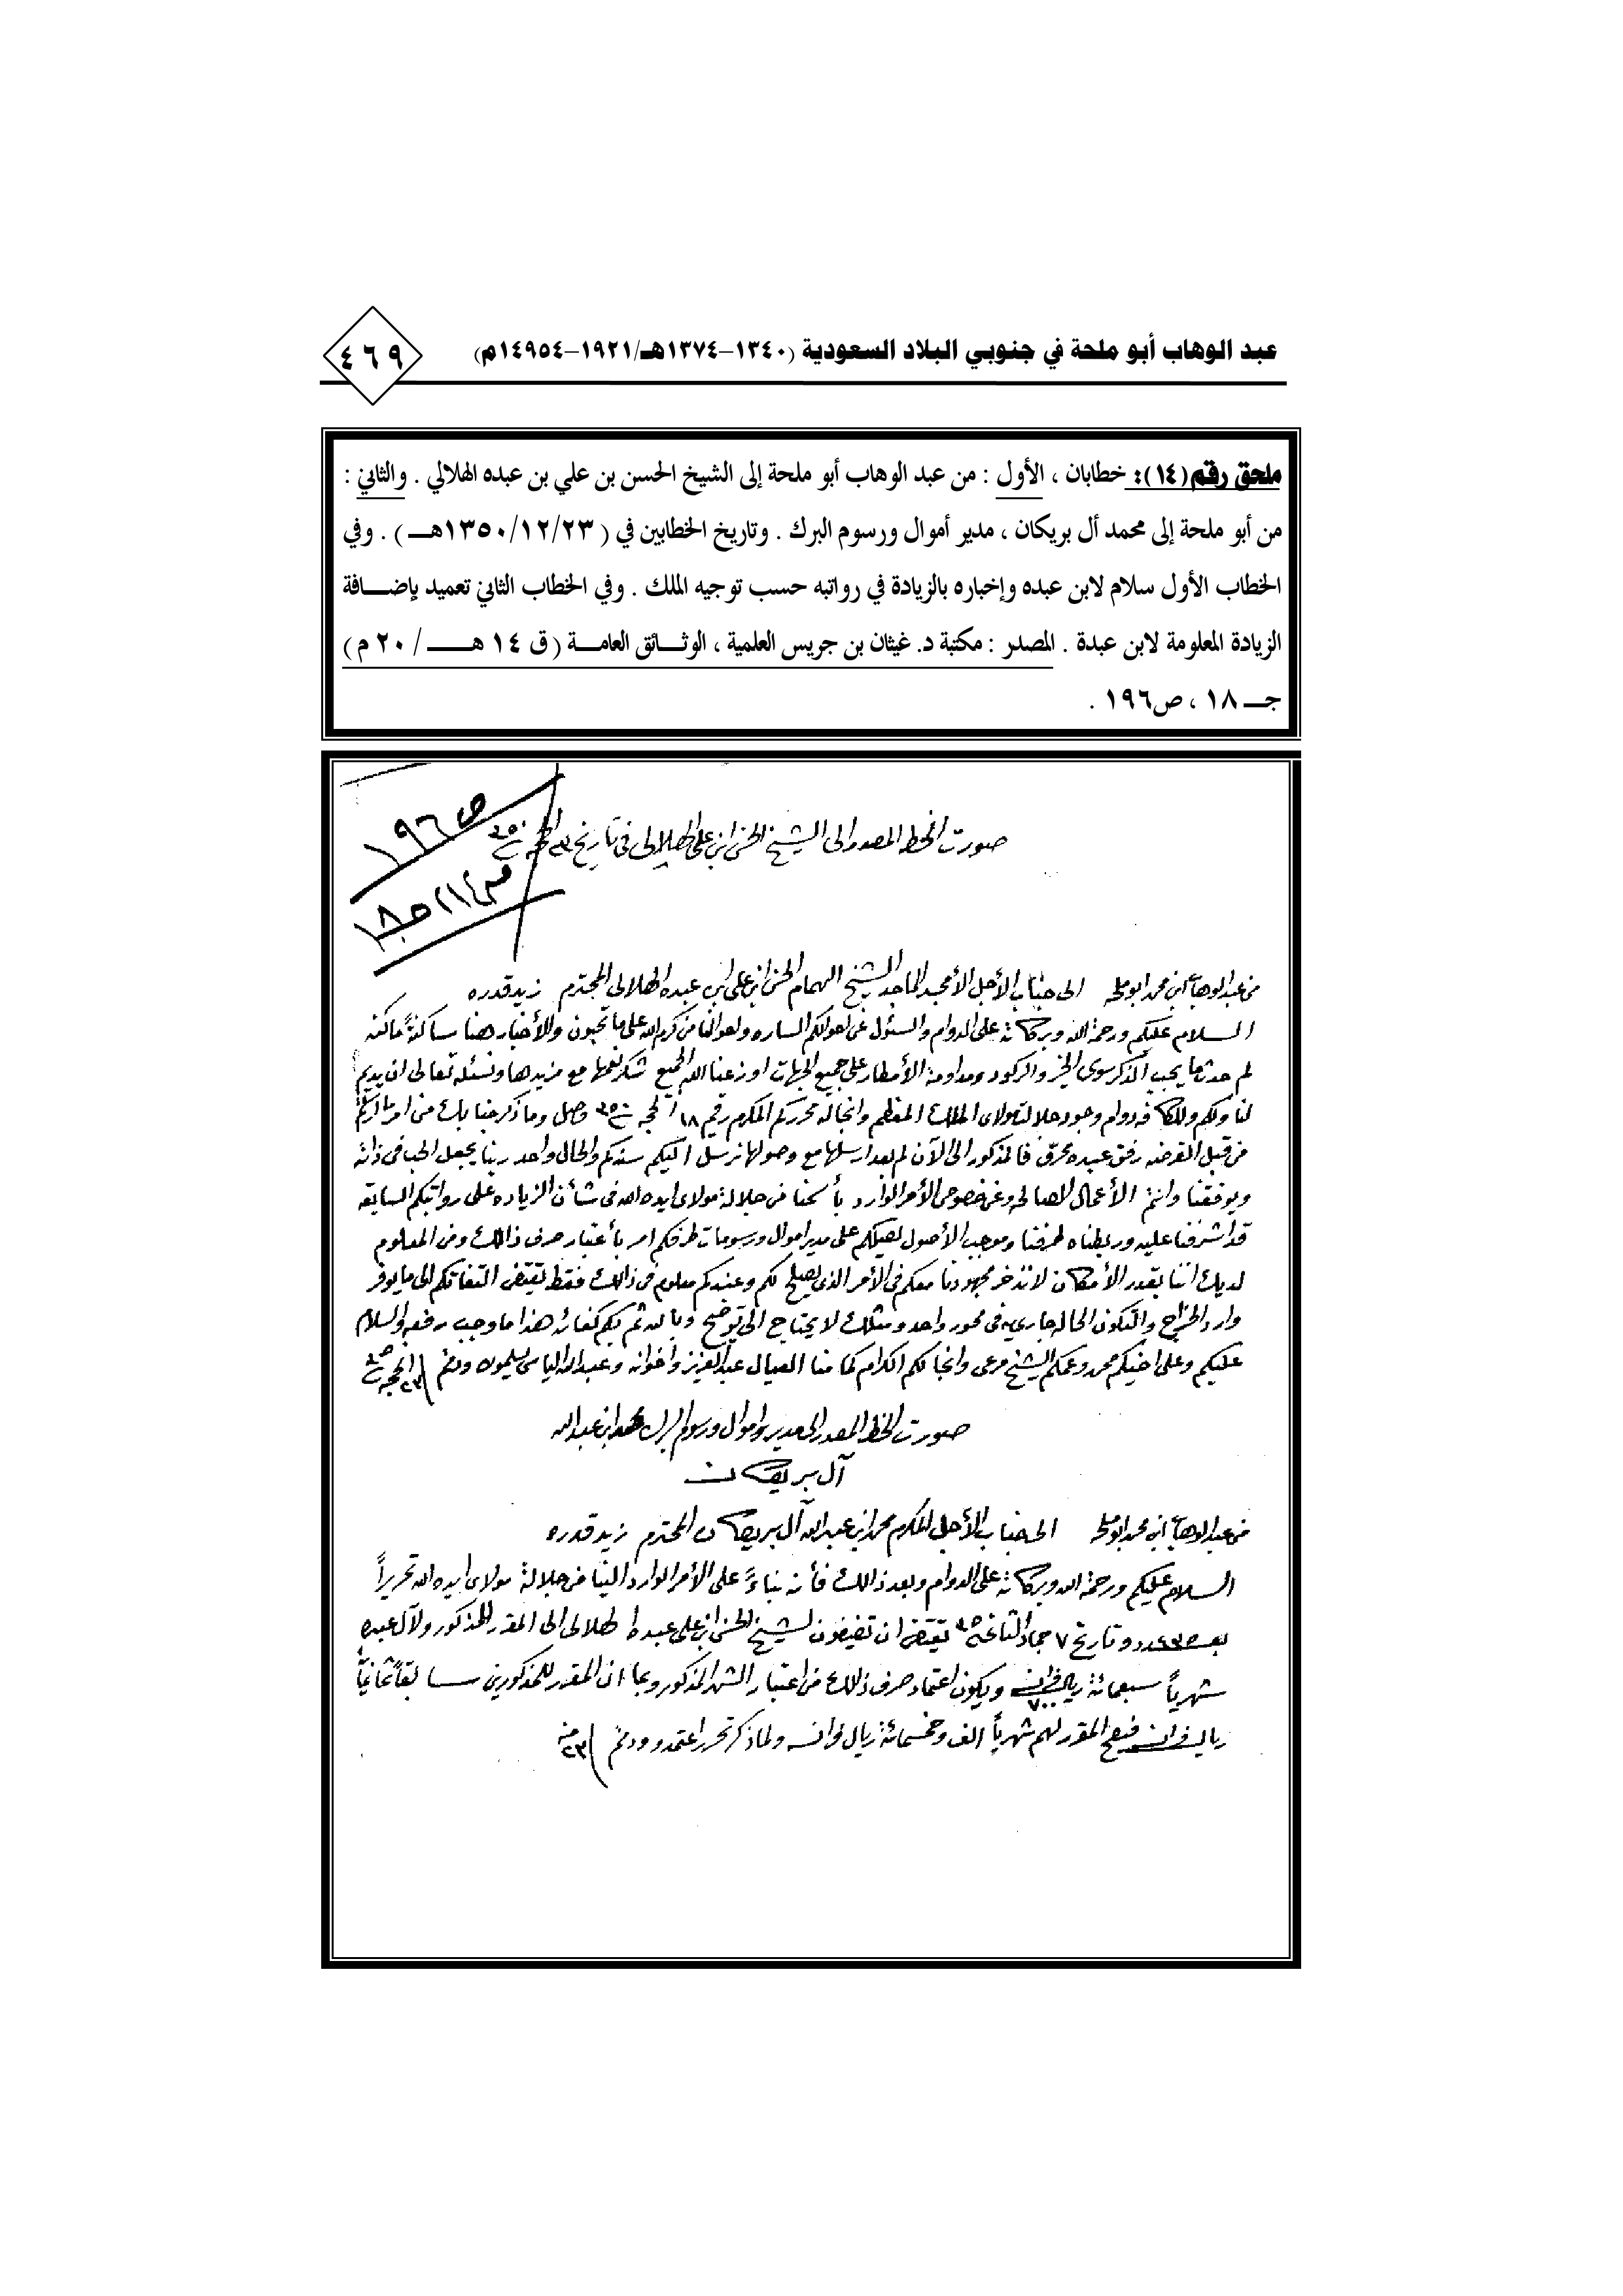 عبد الوهاب أبو ملحة في جنوبي البلاد السعودية (١٣٤٠-١٣٧٤هـ/١٩٢١-١٤٩٥٤م)
٤٦٩
ملحق رقم(١٤): خطابان ، الأول : من عبد الوهاب أبو ملحة إلى الشيخ الحسن بن علي بن عبده الهلالي . والثاني :
من أبو ملحة إلى محمد أل بريكان ، مدير أموال ورسوم البرك . وتاريخ الخطابين في ( ١٣٥٠/١٢/٢٣هـ ) . وفي
الخطاب الأول سلام لابن عبده وإخباره بالزيادة في رواتبه حسب توجيه الملك . وفي الخطاب الثاني تعميد بإضافة
الزيادة المعلومة لابن عبدة . المصدر : مكتبة د. غيثان بن جريس العلمية ، الوثائق العامة ( ق ١٤ هـ / ٢٠ م )
جـ ١٨ ، ص١٩٦ .
ص١٩٦
صورت الخط المصدر الى الشيخ الحسن ابن علي الهلالي في تاريخ
من عبد الوهاب ابن محمد ابو ملحه الى جناب الأجل الأمجد الماجد الشيخ الهمام الحسن ابن علي ابن عبده الهلالي المحترم زيد قدره
السلام عليكم ورحمة الله وبركاته على الدوام والسئول عن احوالكم الساره واحوالنا من كرم الله على ما تحبون والأخبار هنا ساكنة ماكنه
لم حدث ما يجب الذكر سوى الخير والركود ومداومة الأمطار على جميع الجهات اوزعنا الله الجميع شكر نعمها مع مزيدها ونسئله تعالى ان يديم
لنا ولكم وللكافه دوام وجود جلالت مولاي الملك المعظم وانجاله محرركم المكرم رقم ١٨ الحجه وصل وما ذكر جنابك من
من قبل رفق عبيده فالمذكور الى الآن لم بعد ارسلها مع وصولها نرسل اليكم سندكم والحال واحد ربنا يجعل الحب في ذاته
ويوفقنا وانتم الأعمال الصالحه وعن خصوص الأمر الوارد بأسمنا من جلالة مولاي ايده الله في شأن الزياده على رواتبكم السابقه
قد اشرفنا عليه وربطناه لطرفنا وموجب الأصول نحيلكم على مدير اموال ورسومات طرفكم امر بأعتبار صرف ذالك ومن المعلوم
لديك اننا بقدر الأمكان لا نذخر مجهودنا معكم في الأمر الذي يصلح لكم وعندكم معلوم في ذالك فقط نقتضي التفاتكم الى ما يوفر
وارد الخراج والتكون الحاله جاريه في محور واحد ومثلك لا يحتاج الى توضيح وبالله ثم بكم كفائه هذا ما وجب رفعه والسلام
عليكم وعلى اخيكم محمد وعمكم الشيخ مرعي وانجالكم الكرام كما منا العيال عبد العزيز واخوانه وعبد الله الياس يسلمون ودمتم ٢٣ الحجه
صورت الخط المصدر الى مدير اموال ورسوم البرك محمد ابن عبد الله
آل بريكان
من عبد الوهاب ابن محمد ابو ملحه الى جناب الأجل المكرم محمد ابن عبد الله آل بريكان المحترم زيد قدره
السلام عليكم ورحمة الله وبركاته على الدوام وبعد ذالك فأنه بناءً على الأمر الوارد الينا من جلالة مولاي ايده الله تحريراً
بعدد وتاريخ ٧ جماد الثاني نقتضي ان تضيفون لشيخ الحسن ابن علي عبده الهلالي الى المقرر للمذكور ولآل عبده
شهرياً سبعمائة ريال فرانسه ٧٠٠ ويكون اعتماد صرف ذالك من اعتبار الشهر المذكور وبما ان المقرر للمذكورين سابقاً ثمانمائة
ريال فرانسه فيصح المقرر لهم شهرياً الف وخمسمائة ريال فرانسه ولما ذكر تحرر اعتمدوه ودمتم ٢٣ منه